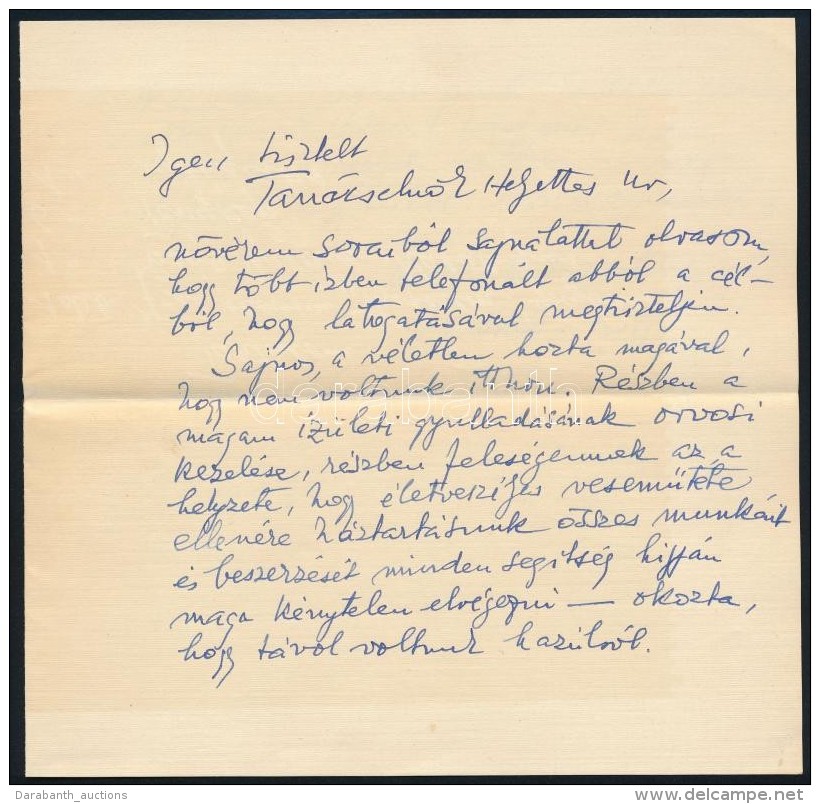 Igen tisztelt
Tanácselnök Helyettes Ur,
nővérem soraiból sajnálattal olvasom,
hogy több ízben telefonált abból a cél-
ból, hogy látogatásával megtiszteljen.
Sajnos, a véletlen hozta magával,
hogy nem voltunk itthon. Részben a
magam ízületi gyulladásának orvosi
kezelése, részben feleségemnek az a
helyzete, hogy életveszélyes veseműtéte
ellenére háztartásunk összes munkáit
és beszerzését minden segítség hijján
maga kénytelen elvégezni — okozta,
hogy távol voltunk hazulról.
darabanth
Darabanth_auctions
www.delcampe.net